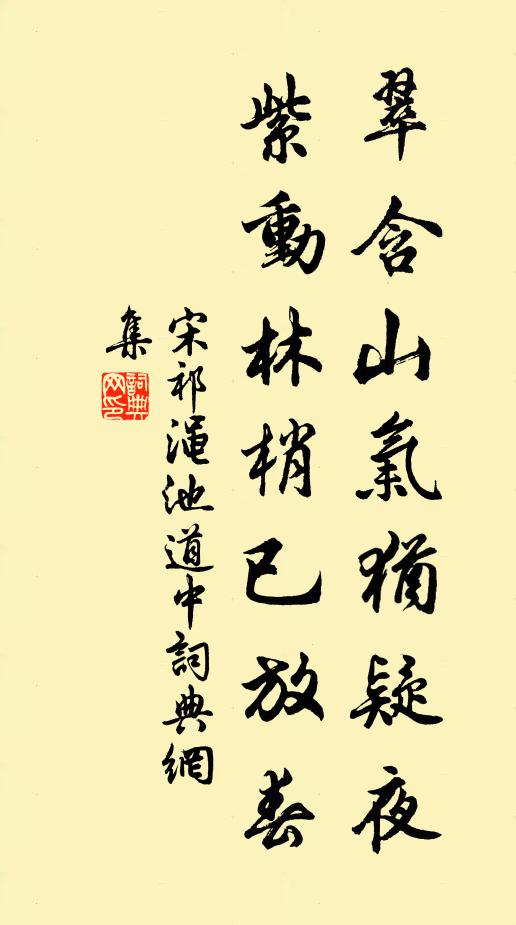 翠含山氣猶疑夜
紫動林梢已放春
宋祁澠池道中詞典網
集
詞典网印